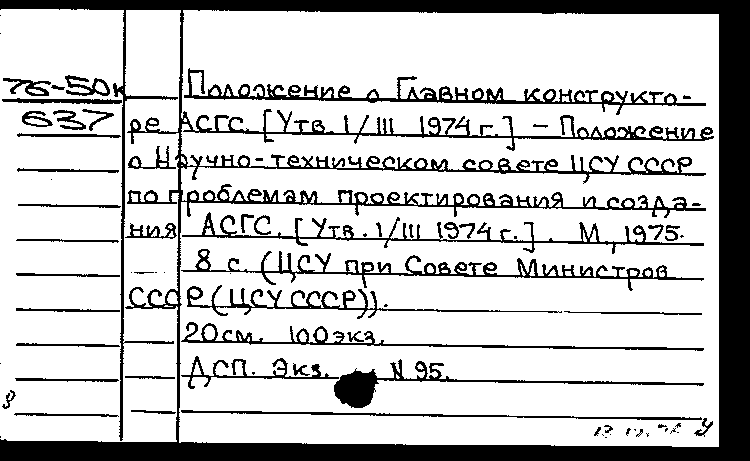 76-50к Положение о Главном конструкто-
637 ре АСГС. [Утв. 1/III 1974 г.] - Положение
о Научно-техническом совете ЦСУ СССР
по проблемам проектирования и созда-
ния АСГС. [Утв. 1/III 1974 г.]. М., 1975.
8 с. (ЦСУ при Совете Министров
СССР (ЦСУ СССР)).
20см. 100экз.
ДСП. Экз. N 95.